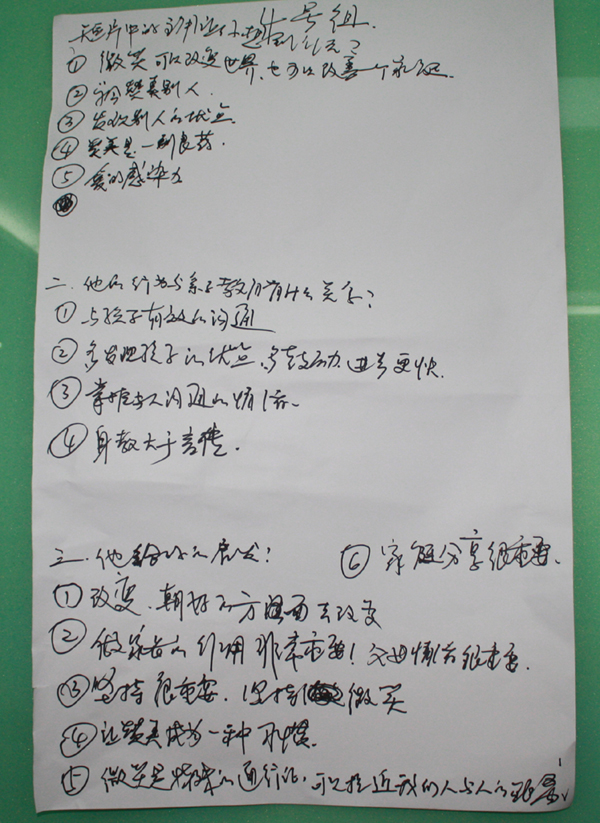 短片中的影响让你想到什么？ 4号组
① 微笑可以改变世界，也可以改善一个家庭.
② 学会赞美别人.
③ 发现别人的优点.
④ 赞美是一副良药.
⑤ 爱的感染力
二. 他的行为与亲子教育有什么关系？
① 与孩子有效的沟通
② 多发现孩子的优点，多鼓励，进步更快.
③ 掌握与人沟通的
④ 身教大于言传.
三. 他给你的启发？ ⑥ 家庭分享很重要.
① 改变、朝好的方面去改变
② 做家长的作用非常重要！父母情商很重要.
③ 坚持很重要. 坚持微笑
④ 让赞美成为一种习惯.
⑤ 微笑是特殊的通行证，可以拉近我们人与人的距离